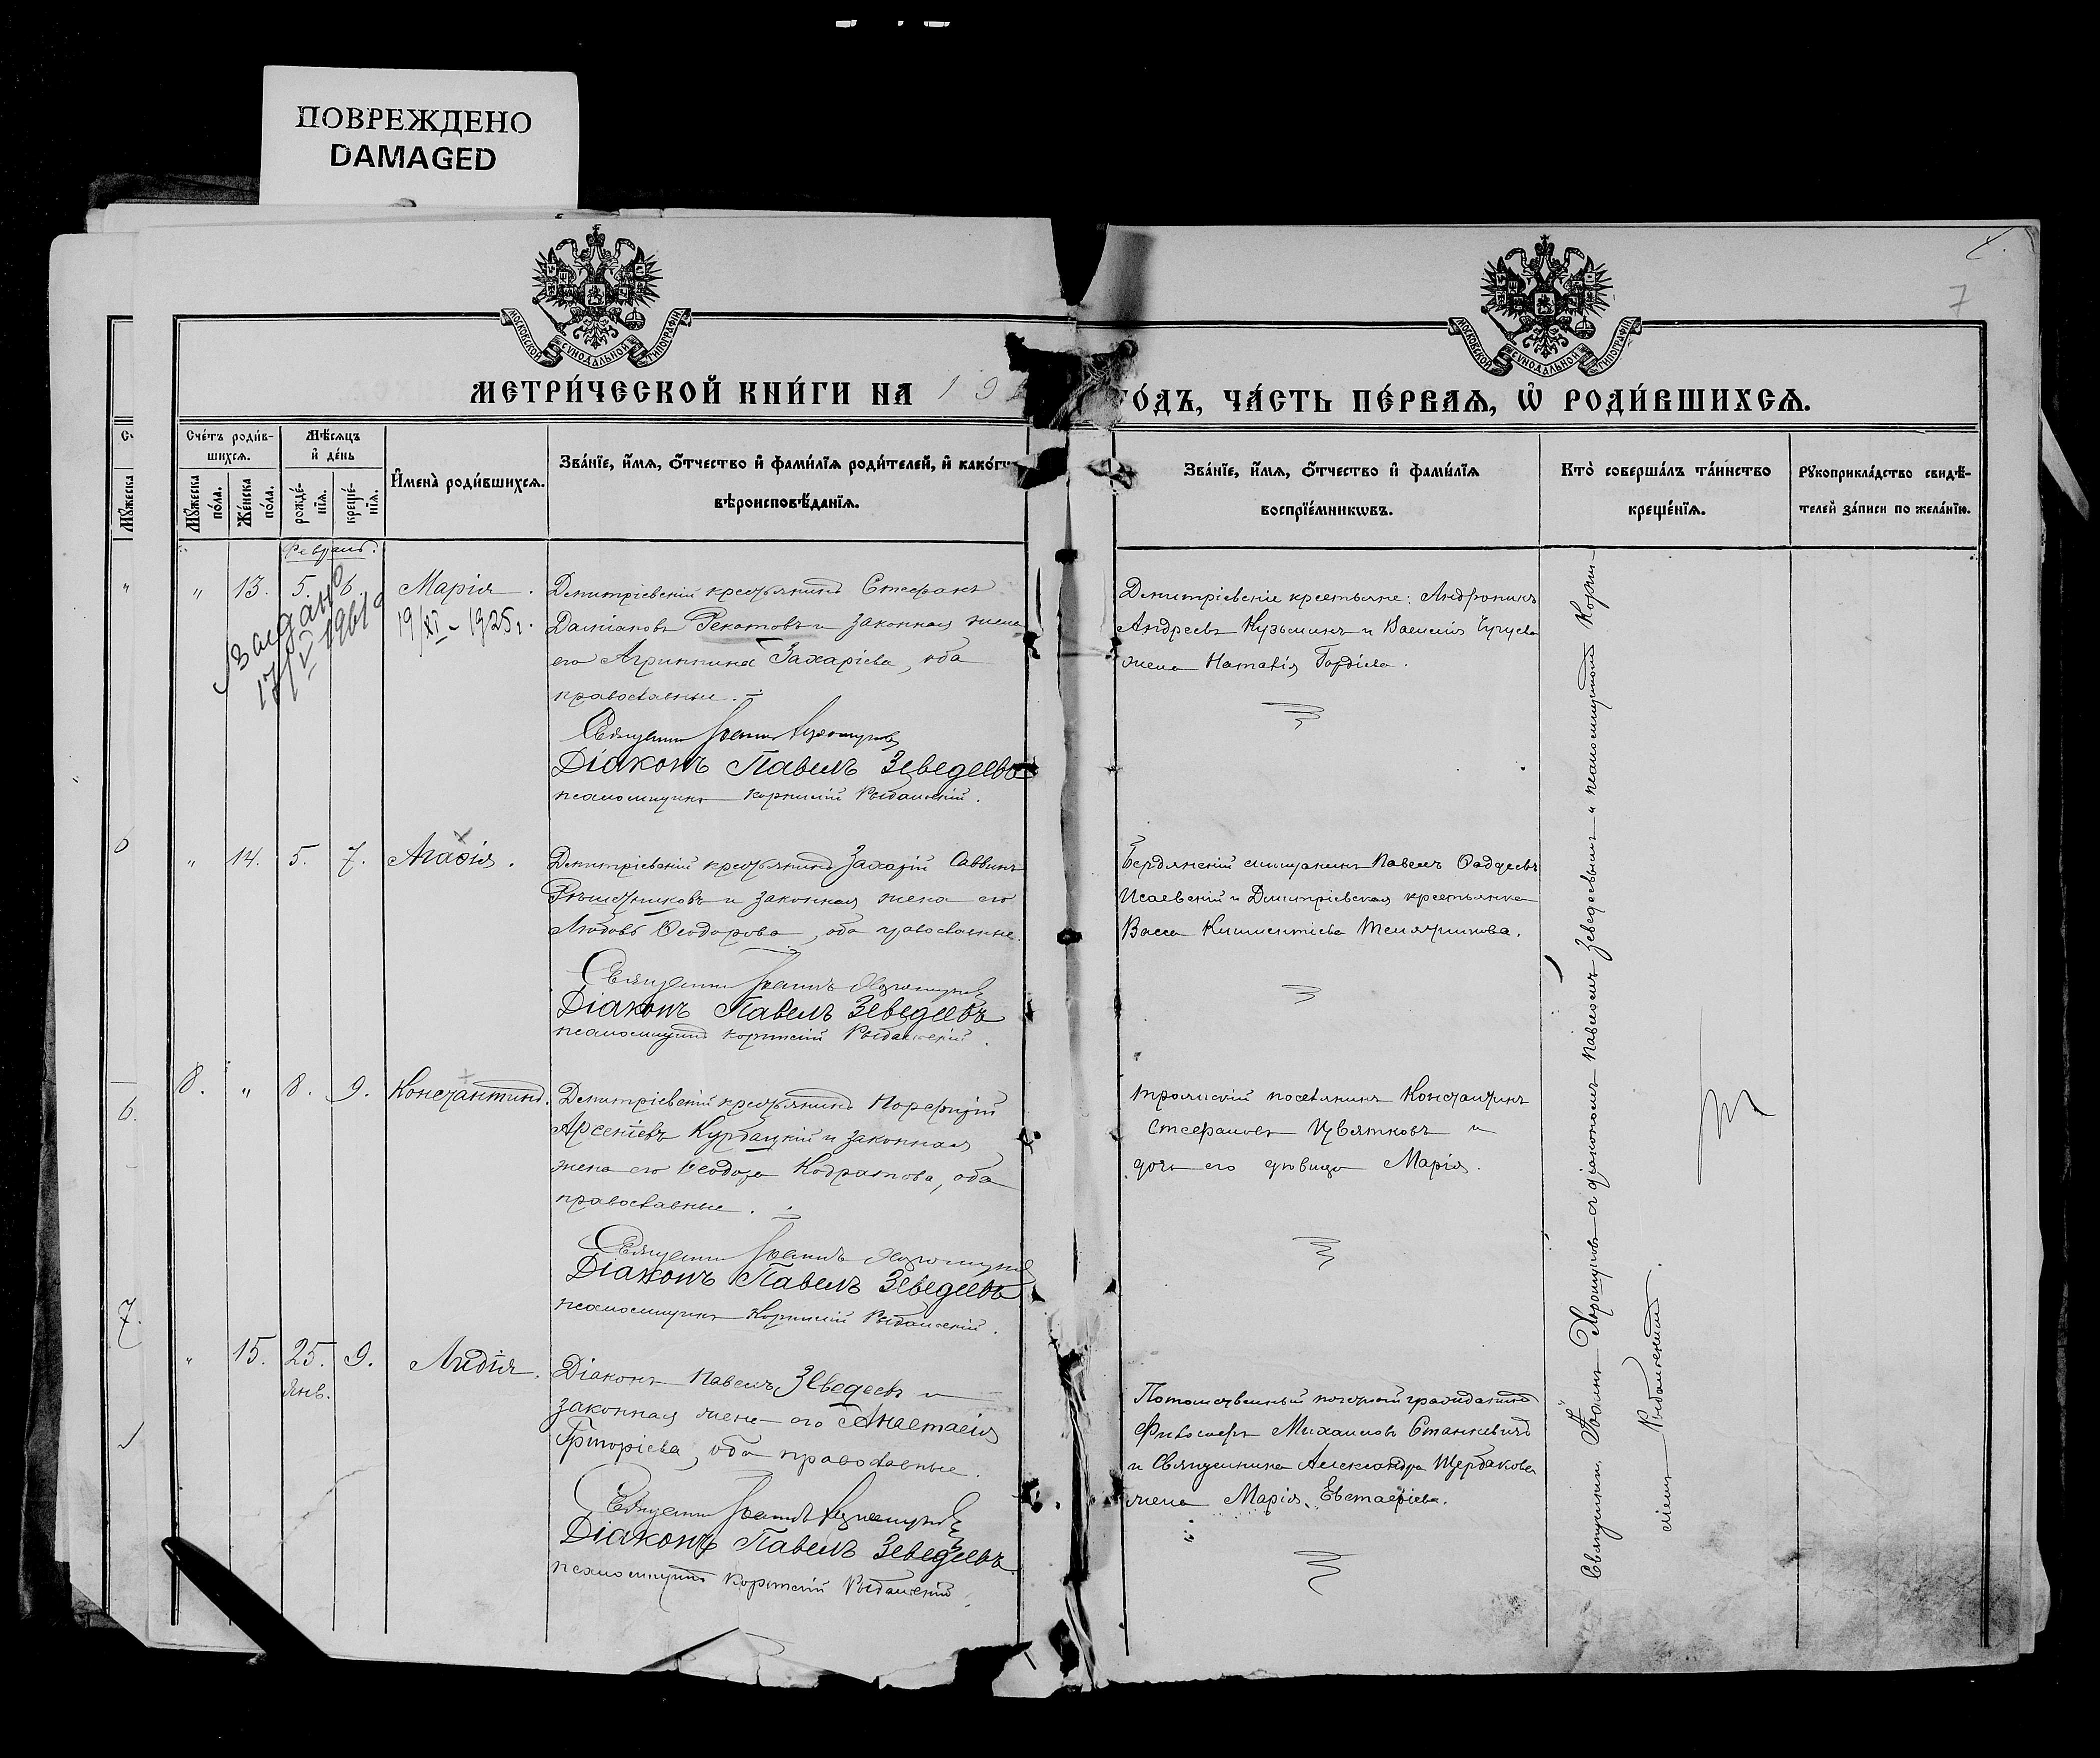 ПОВРЕЖДЕНО
DAMAGED
7
МОСКОВСКОЙ СѴНОДАЛЬНОЙ ТИПОГРАФІИ
МОСКОВСКОЙ СѴНОДАЛЬНОЙ ТИПОГРАФІИ
МЕТРИ́ЧЕСКОЙ КНИ́ГИ НА 19
ГО́ДЪ, ЧА́СТЬ ПЕ́РВАѦ, Ѡ РОДИ́ВШИХСѦ.
Сче́тъ роди́в-
шихсѧ.
Мꙋжеска по́ла.
Же́нска по́ла.
Мѣ́сѧцъ
и҆ де́нь
рожде́-
нїѧ.
креще́-
нїѧ.
И҆мена̀ роди́вшихсѧ.
Зва́нїе, и҆́мѧ, ѻ҆́тчество и҆ фами́лїѧ роди́телей, и҆ како́гѡ
вѣроисповѣ́данїѧ.
Зва́нїе, и҆́мѧ, ѻ҆́тчество и҆ фами́лїѧ
воспрїе́мникѡвъ.
Кто̀ соверша́лъ та́инство
креще́нїѧ.
Рꙋкоприкла́дство свидѣ́-
телей за́писи по жела́нїю.
Мꙋжеска
Февраль.
" 13. 5. 6. Марія.
19/XI – 1925 г.
17/V 1961
Димитріевскій крестьянинъ Стефанъ
Даміановъ Фекатовъ и законная жена
его Агриппина Захаріева, оба
православные.
Священникъ Іоаннъ
Діаконъ Павелъ Зеведеевъ
псаломщикъ Корнилій Рыбальскій.
Димитріевскіе крестьяне: Андроникъ
Андреевъ Кузьминъ и Василія
жена Наталія Гордіева.
" 14. 5. 7. Агафія.
Димитріевскій крестьянинъ Захарій Саввинъ
Рѣшетниковъ и законная жена его
Любовь Ѳеодорова, оба православные.
Священникъ Іоаннъ
Діаконъ Павелъ Зеведеевъ
псаломщикъ Корнилій Рыбальскій.
Бердянскій мѣщанинъ Павелъ Ѳаддеевъ
Исаевскій и Димитріевская крестьянка
Васса Климентіева
8. " 8. 9. Константинъ.
Димитріевскій крестьянинъ Порфирій
Арсеніевъ Курбацкій и законная
жена его Ѳеодора Кодратова, оба
православные.
Священникъ Іоаннъ
Діаконъ Павелъ Зеведеевъ
псаломщикъ Корнилій Рыбальскій.
Троянскій поселянинъ Константинъ
Стефановъ Цвятковъ и
дочь его дѣвица Марія.
" 15. 25. 9. Лидія.
Янв.
Діаконъ Павелъ Зеведеевъ и
законная жена его Анастасія
Григоріева, оба православные.
Священникъ Іоаннъ
Діаконъ Павелъ Зеведеевъ
псаломщикъ Корнилій Рыбальскій.
Потомственный почетный гражданинъ
Философъ Михаиловъ Станкевичъ
и Священника Александра Щербакова
жена Марія Евстаѳіева.
Священникъ Іоаннъ съ діакономъ Павломъ Зеведеевымъ и псаломщикомъ Корни-
ліемъ Рыбальскимъ.
6.
7.